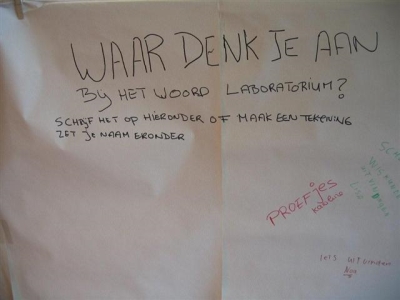 WAAR DENK JE AAN
BIJ HET WOORD LABORATORIUM?
SCHRIJF HET OP HIERONDER OF MAAK EEN TEKENING
ZET JE NAAM ERONDER
PROEFJES
iets uitvinden